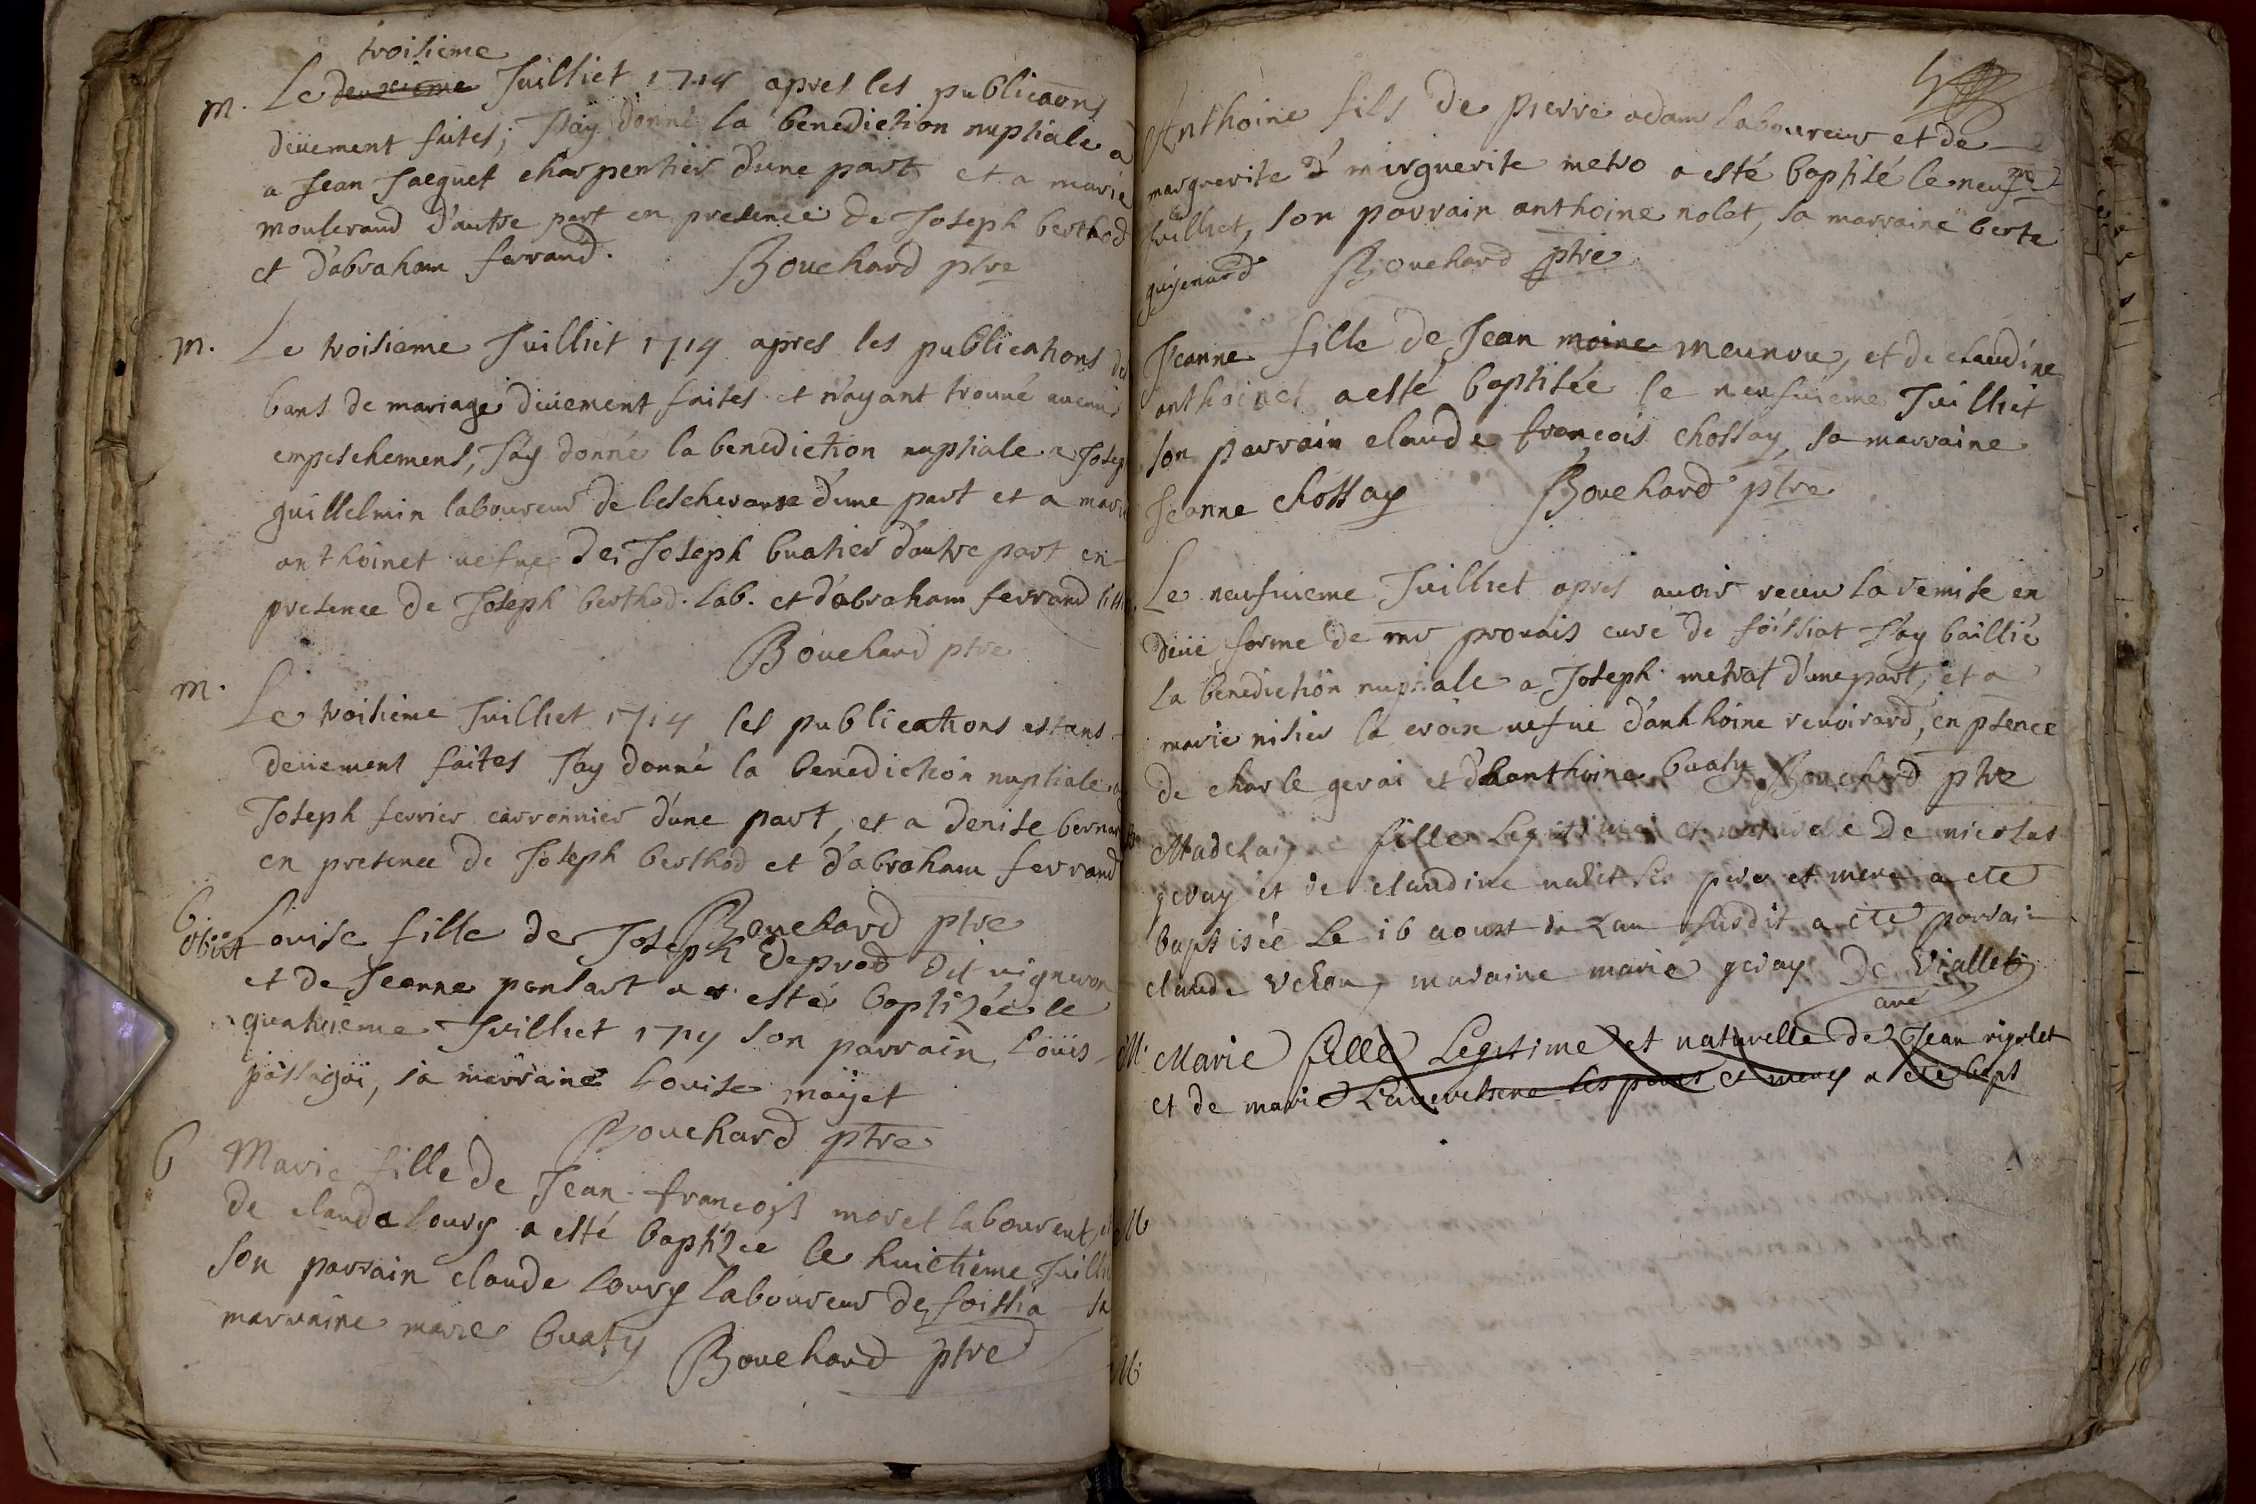 troisieme
m. Le deuxieme Juilliet 1714 apres les publicaons
deüement faites; J'ay donné la benediction nuptiale a
a Jean Jacquet charpentier d'une part et a marie
moulerand d'autre part en presence de Joseph berthod
et d'abraham ferrand. Bouchard ptre
m. Le troisieme Juilliet 1714 apres les publications des
bans de mariage deüement faites et n'ayant trouué aucuns
empeschemens, J'ay donné la benediction nuptiale a Josep
guillelmin laboureur de d'une part et a marie
anthoinet uefue de Joseph buatier d'autre part en
presence de Joseph berthod. lab. et d'abraham ferrand
Bouchard ptre
m. Le troisieme Juilliet 1714 les publications estans
deüement faites J'ay donné la benediction nuptiale a
Joseph ferrier carronnier d'une part, et a denise bernar
en presence de Joseph berthod et d'abraham ferrand
Bouchard ptre
b
obiit Louise fille de Joseph deprad dit uigneron
et de Jeanne ponsart a esté baptizée le
quatrieme Juilliet 1714 son parrain Loüis
passagoi, sa marraine Louise moÿet
Bouchard ptre
b Marie fille de Jean françois moret laboureut, et
de clauda Loury a esté baptizée le huictieme Juillie
son parrain claude Loury laboureur de foissia sa
marraine marie buaty Bouchard ptre
Anthoine fils de pierre adam laboureur et de
marguerite d marguerite metro a esté baptisé le neufme
Juilliet, son parrain anthoine nolet, sa marraine berte
guyenard Bouchard ptre
Jeanne fille de Jean moine meunou, et de claudine
anthoinet a esté baptisée le neufuieme Juilliet
son parrain claude françois chossay, sa marraine
Jeanne chossay Bouchard ptre
Le neufuieme Juilliet apres auoir receu la remise en
deüe forme de mr prouais curé de foissiat J'ay baillié
la benediction nuptiale a Joseph metrat d'une part, et a
marie nisier la croix uefue d'anthoine renoirard, en psence
de charle gerai et d'anthoine buaty Bouchard ptre
Madelaine fille Legitime et naturelle de nicolas
gevay et de claudine nalet ses pere et mere a eté
baptisée Le 16 aoust de Lan susdit a eté parrain
claude Velon, maraine marie gevay De Viallet
curé
Marie fille Legitime et naturelle de Jean rigolet
et de marie ses peres et meres a eté bapt